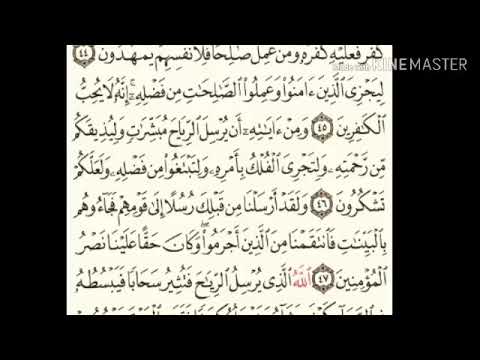 KINEMASTER
كَفَرَ فَعَلَيْهِ كُفْرُهُۥ وَمَنْ عَمِلَ صَٰلِحًا فَلِأَنفُسِهِمْ يَمْهَدُونَ ٤٤
لِيَجْزِىَ ٱلَّذِينَ ءَامَنُوا۟ وَعَمِلُوا۟ ٱلصَّٰلِحَٰتِ مِن فَضْلِهِۦٓ ۚ إِنَّهُۥ لَا يُحِبُّ
ٱلْكَٰفِرِينَ ٤٥ وَمِنْ ءَايَٰتِهِۦٓ أَن يُرْسِلَ ٱلرِّيَاحَ مُبَشِّرَٰتٍ وَلِيُذِيقَكُم
مِّن رَّحْمَتِهِۦ وَلِتَجْرِىَ ٱلْفُلْكُ بِأَمْرِهِۦ وَلِتَبْتَغُوا۟ مِن فَضْلِهِۦ وَلَعَلَّكُمْ
تَشْكُرُونَ ٤٦ وَلَقَدْ أَرْسَلْنَا مِن قَبْلِكَ رُسُلًا إِلَىٰ قَوْمِهِمْ فَجَآءُوهُم
بِٱلْبَيِّنَٰتِ فَٱنتَقَمْنَا مِنَ ٱلَّذِينَ أَجْرَمُوا۟ ۖ وَكَانَ حَقًّا عَلَيْنَا نَصْرُ
ٱلْمُؤْمِنِينَ ٤٧ ٱللَّهُ ٱلَّذِى يُرْسِلُ ٱلرِّيَٰحَ فَتُثِيرُ سَحَابًا فَيَبْسُطُهُۥ